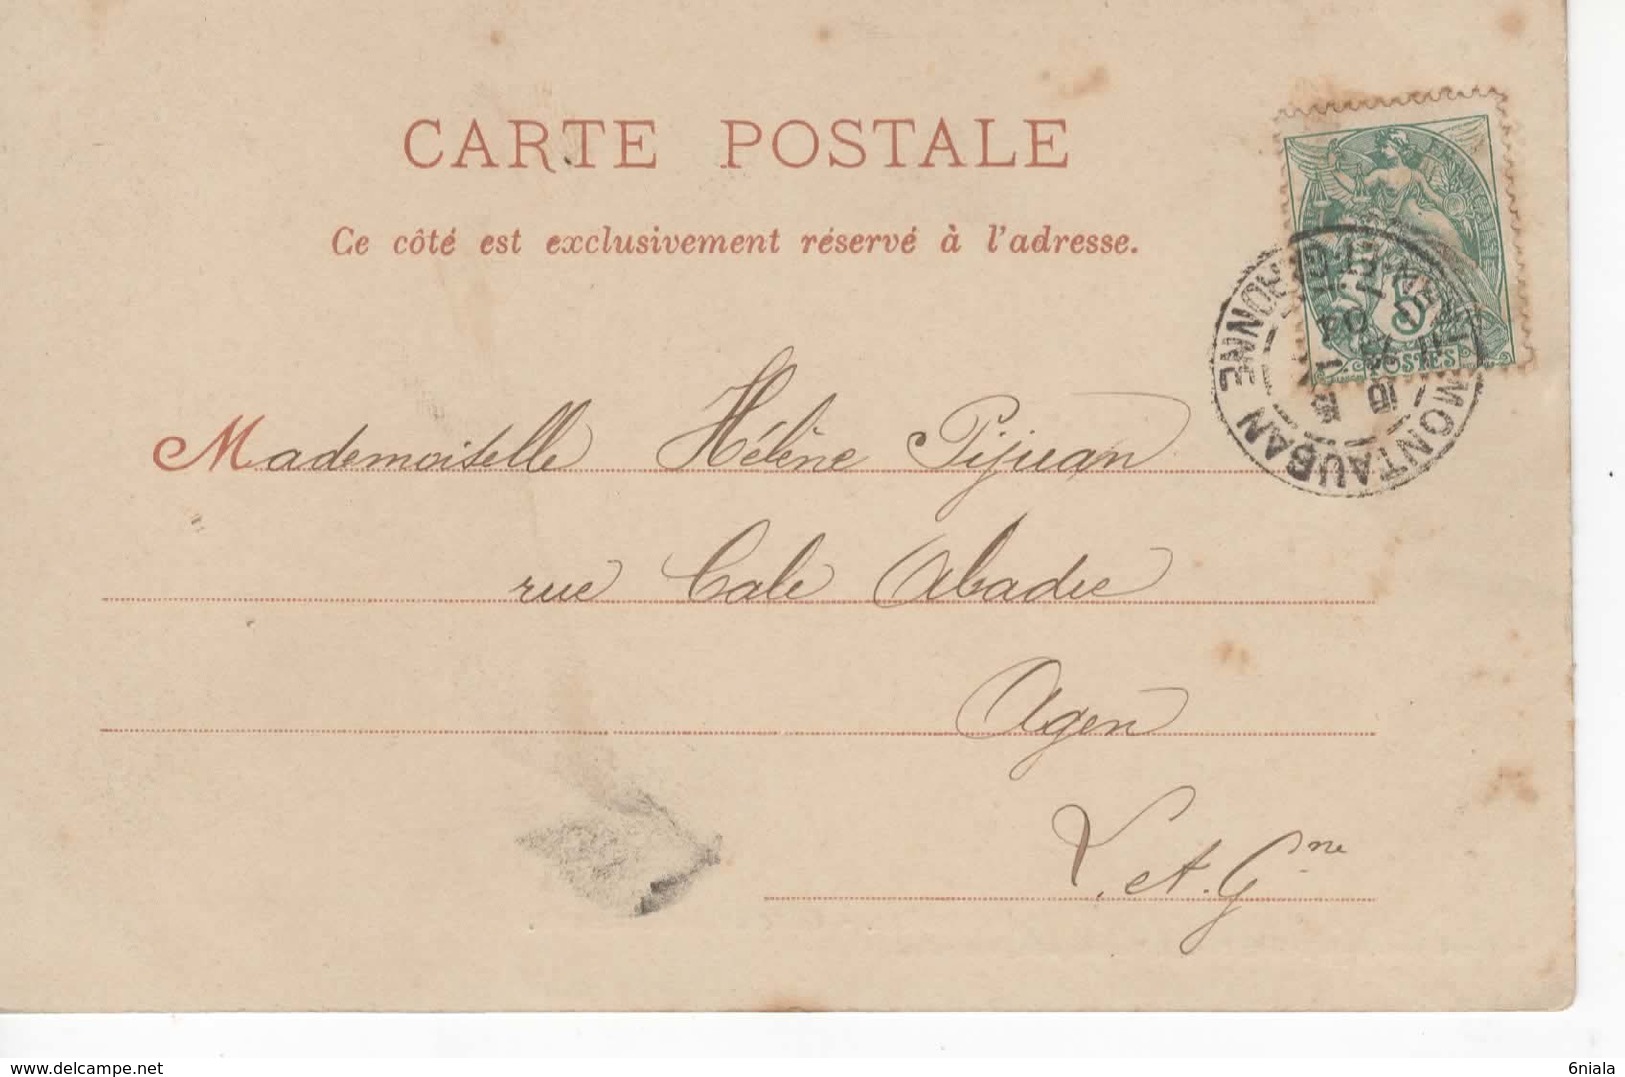 CARTE POSTALE
Ce côté est exclusivement réservé à l'adresse.
FRANÇAISE
5
POSTES
MONTAUBAN
TARN-ET-GARONNE
04
Mademoiselle Hélène Pijuan
rue Cale Abadie
Agen
L. et G.ne
delcampe.net
6niala